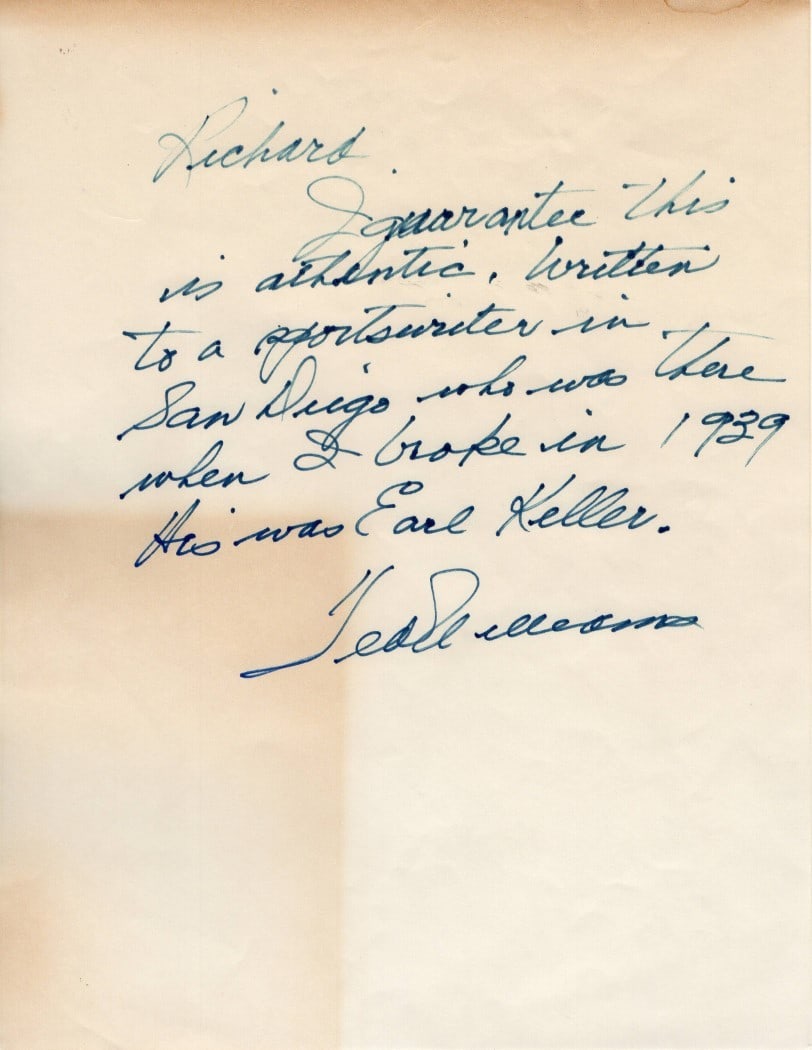 Richard
I guarantee this
is athentic. Written
to a sportswriter in
San Diego who was there
when I broke in 1939
His was Earl Keller.
Ted Williams